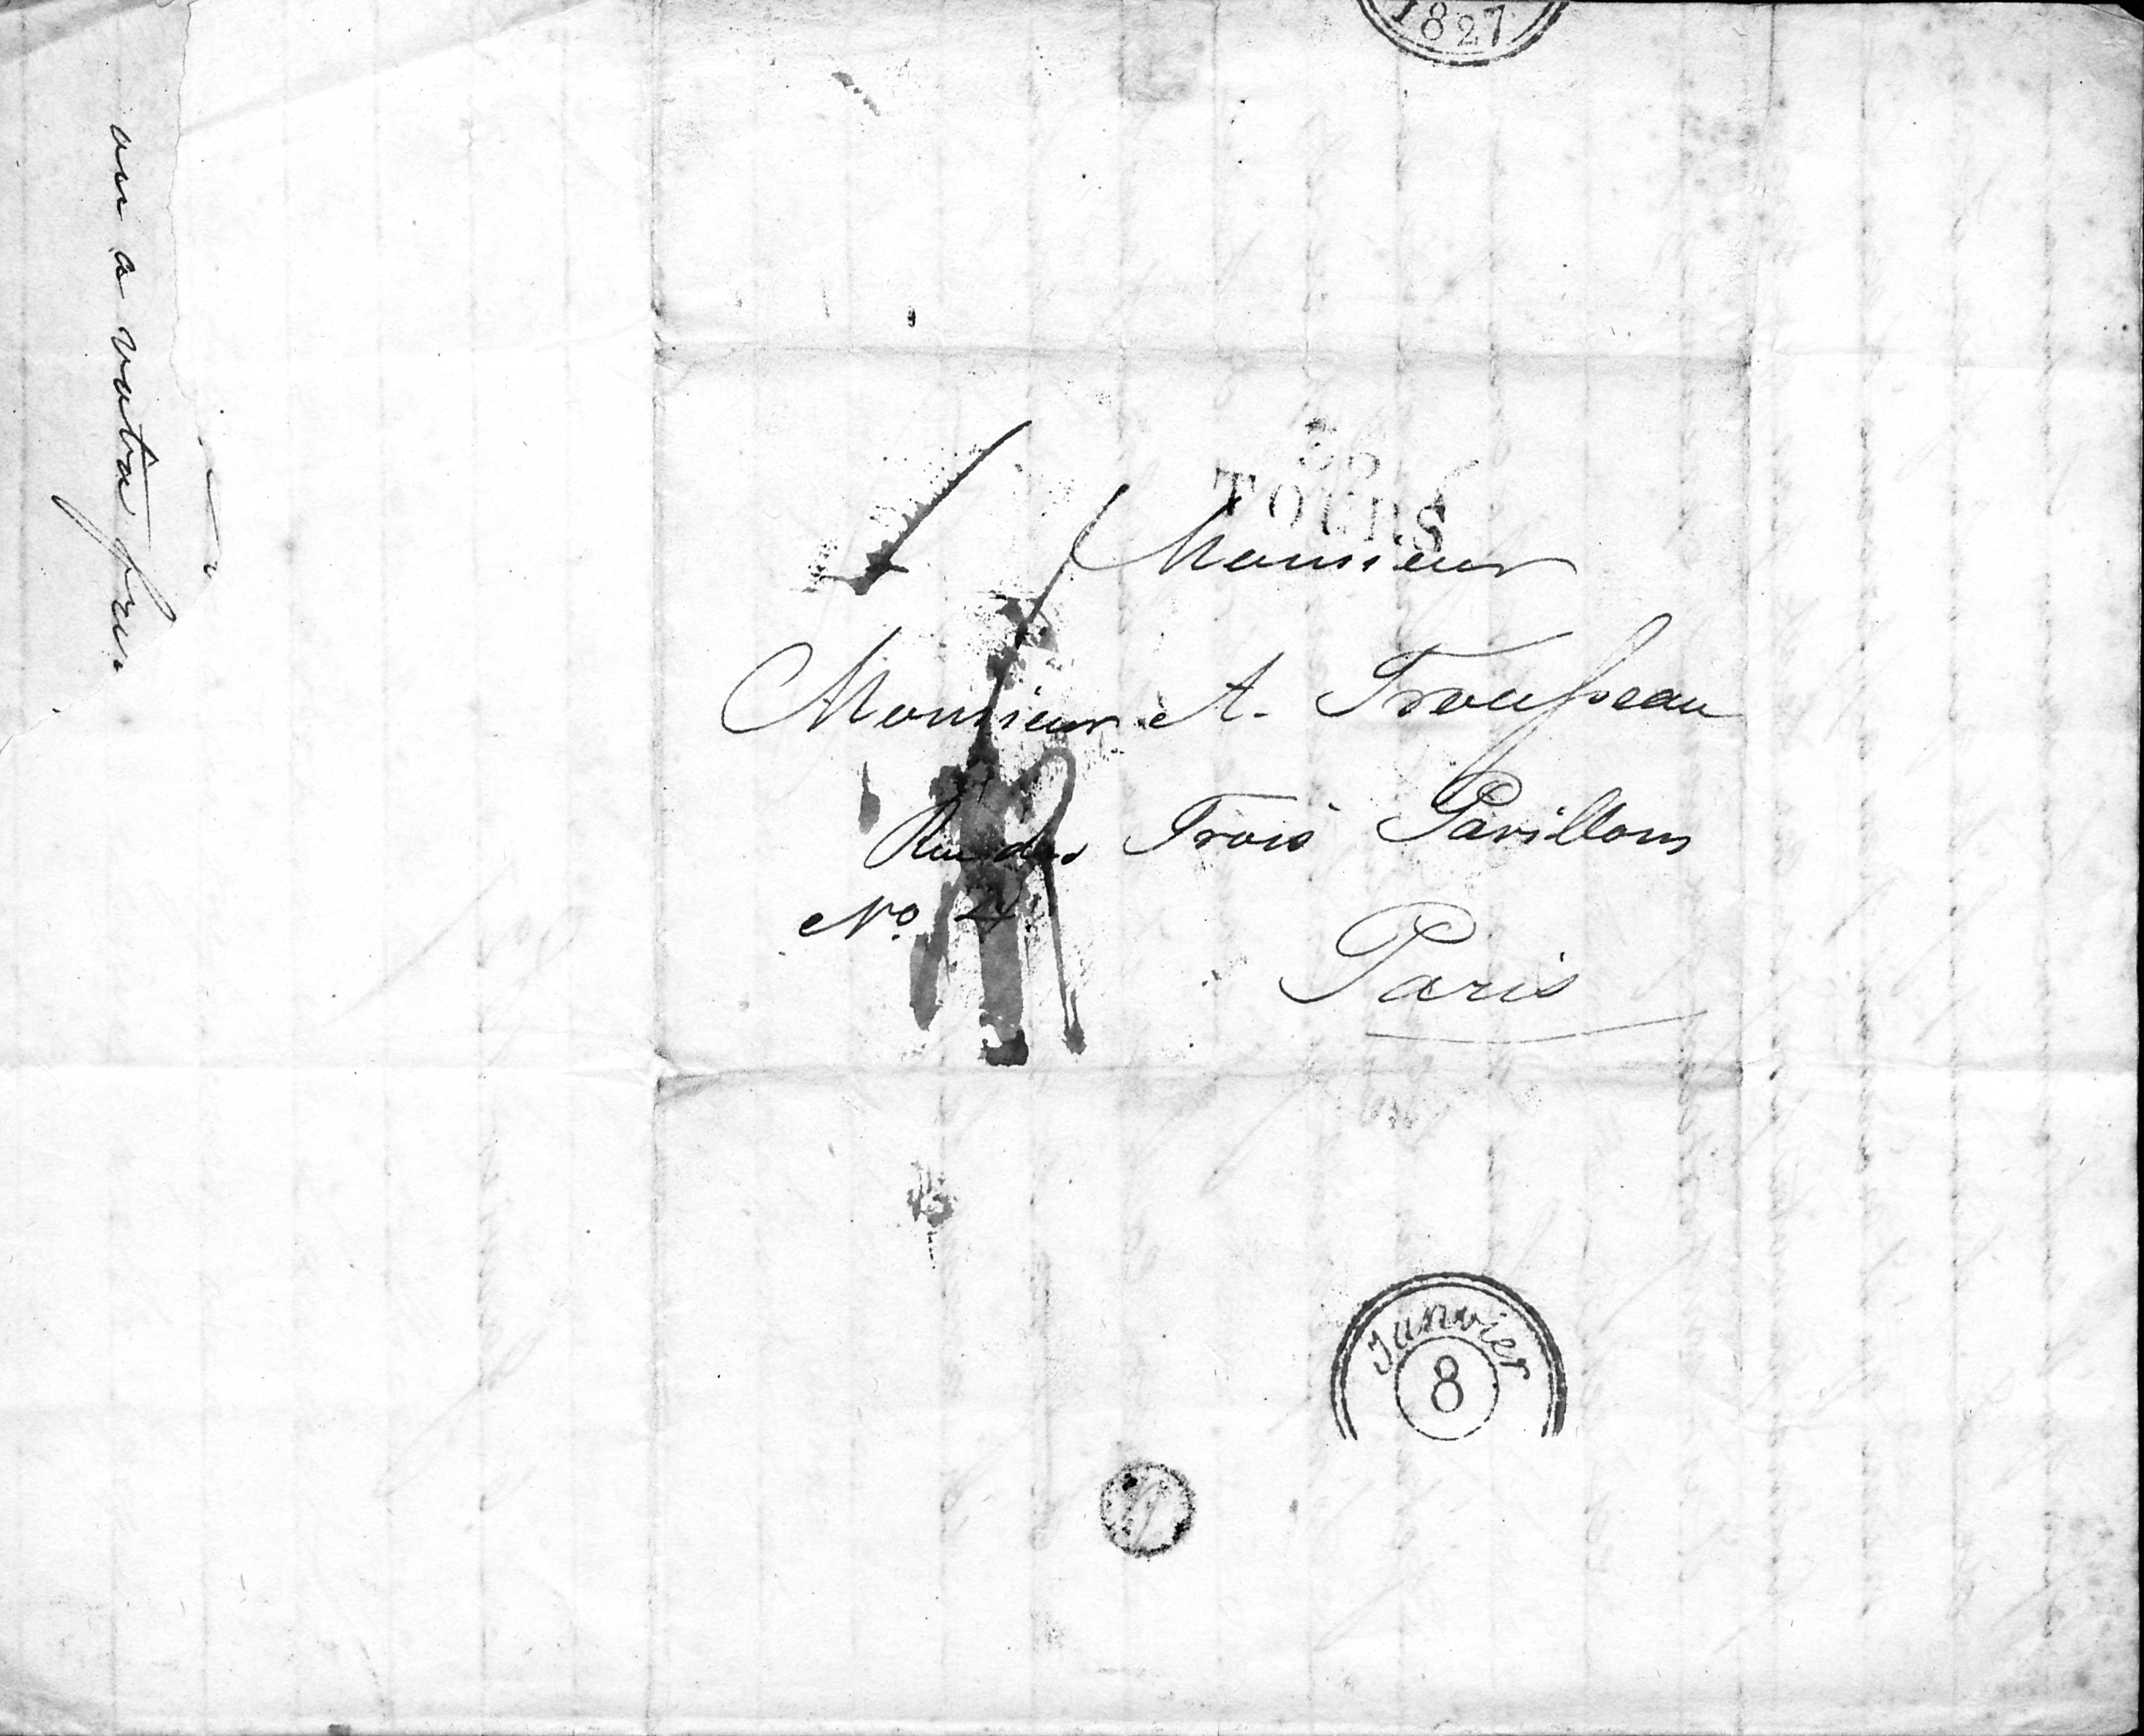 1827
TOURS
Monsieur
Monsieur A. Trousseau
Rue des Trois Pavillons
No. 2
Paris
Janvier
8
a votre frere